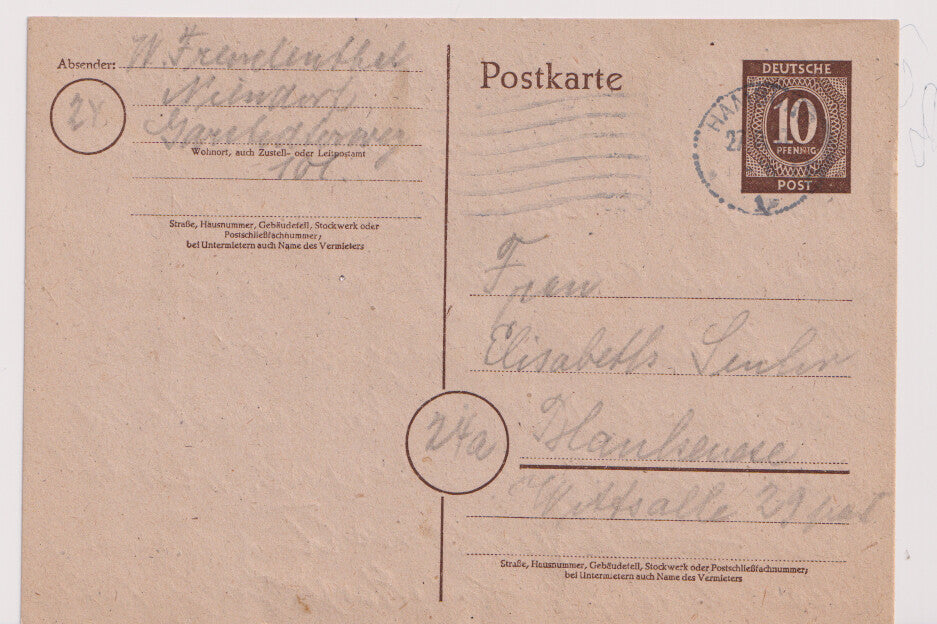 Absender: W. Freudenthal
24 Niendorf
Wohnort, auch Zustell- oder Leitpostamt
101
Straße, Hausnummer, Gebäudeteil, Stockwerk oder
Postschließfachnummer;
bei Untermietern auch Name des Vermieters
Postkarte
DEUTSCHE
10
PFENNIG
POST
HAM
27
Frau
Elisabeth
24a Blankenese
29
Straße, Hausnummer, Gebäudeteil, Stockwerk oder Postschließfachnummer;
bei Untermietern auch Name des Vermieters